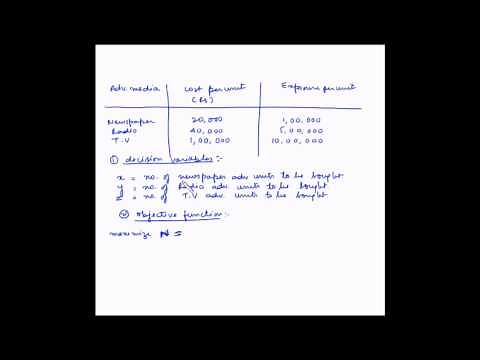 Adv. media Cost per unit Exposure per unit
(Rs)
Newspaper 20,000 1,00,000
Radio 40,000 5,00,000
T.V 1,00,000 10,00,000
(i) decision variables :-
x = no. of newspaper adv. units to be bought.
y = no. of Radio adv. units to be bought.
z = no. of T.V adv. units to be bought.
objective function :-
maximize =